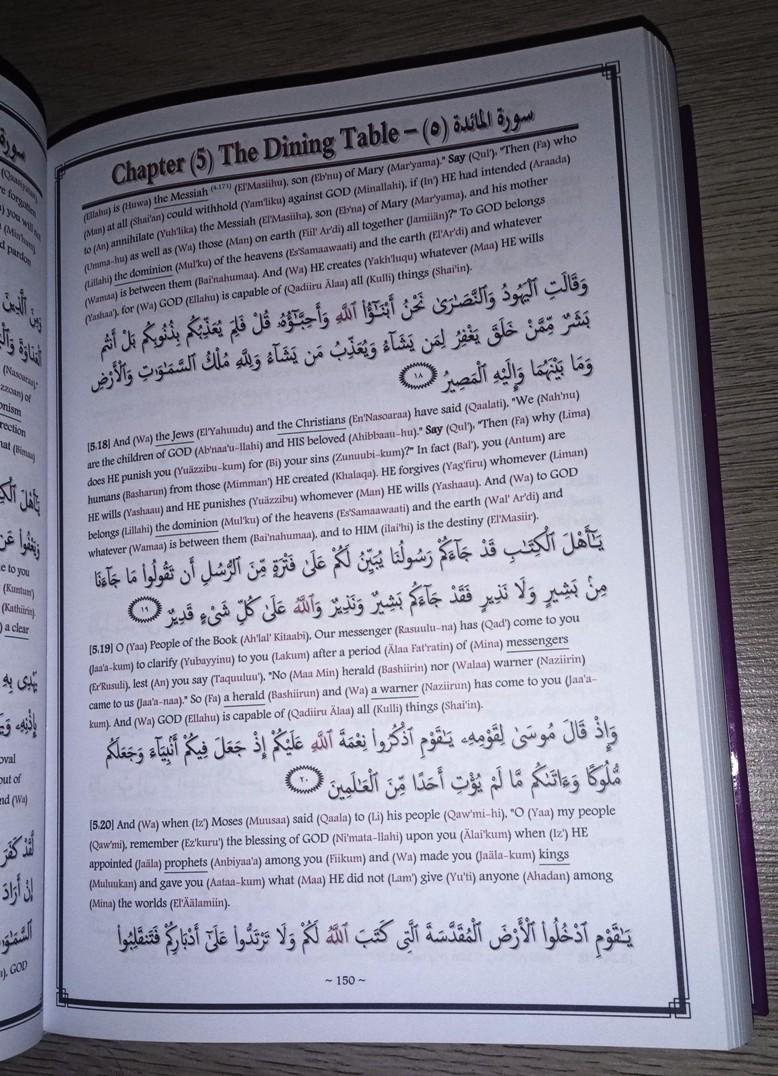 Chapter (5) The Dining Table – (٥) سورة المائدة
(Ellahu) is (Huwa) the Messiah (4.171) (El'Masiihu), son (Eb'nu) of Mary (Mar'yama)." Say (Qul'), "Then (Fa) who
(Man) at all (Shai'an) could withhold (Yam'liku) against GOD (Minallahi), if (In') HE had intended (Araada)
to (An) annihilate (Yuh'lika) the Messiah (El'Masiiha), son (Eb'na) of Mary (Mar'yama), and his mother
(Umma-hu) as well as (Wa) those (Man) on earth (Fiil' Ar'di) all together (Jamiiän)?" To GOD belongs
(Lillahi) the dominion (Mul'ku) of the heavens (Es'Samaawaati) and the earth (El'Ar'di) and whatever
(Wamaa) is between them (Bai'nahumaa). And (Wa) HE creates (Yakh'luqu) whatever (Maa) HE wills
(Yashaa), for (Wa) GOD (Ellahu) is capable of (Qadiiru Älaa) all (Kulli) things (Shai'in).
وَقَالَتِ ٱلْيَهُودُ وَٱلنَّصَـٰرَىٰ نَحْنُ أَبْنَـٰٓؤُا۟ ٱللَّهِ وَأَحِبَّـٰٓؤُهُۥ قُلْ فَلِمَ يُعَذِّبُكُم بِذُنُوبِكُم بَلْ أَنتُم
بَشَرٌ مِّمَّنْ خَلَقَ يَغْفِرُ لِمَن يَشَآءُ وَيُعَذِّبُ مَن يَشَآءُ وَلِلَّهِ مُلْكُ ٱلسَّمَـٰوَٰتِ وَٱلْأَرْضِ
وَمَا بَيْنَهُمَا وَإِلَيْهِ ٱلْمَصِيرُ ١٨
[5.18] And (Wa) the Jews (El'Yahuudu) and the Christians (En'Nasoaraa) have said (Qaalati), "We (Nah'nu)
are the children of GOD (Ab'naa'u-llahi) and HIS beloved (Ahibbaau-hu)." Say (Qul'), "Then (Fa) why (Lima)
does HE punish you (Yuäzzibu-kum) for (Bi) your sins (Zunuubi-kum)?" In fact (Bal'), you (Antum) are
humans (Basharun) from those (Mimman') HE created (Khalaqa). HE forgives (Yag'firu) whomever (Liman)
HE wills (Yashaau) and HE punishes (Yuäzzibu) whomever (Man) HE wills (Yashaau). And (Wa) to GOD
belongs (Lillahi) the dominion (Mul'ku) of the heavens (Es'Samaawaati) and the earth (Wal' Ar'di) and
whatever (Wamaa) is between them (Bai'nahumaa), and to HIM (ilai'hi) is the destiny (El'Masiir).
يَـٰٓأَهْلَ ٱلْكِتَـٰبِ قَدْ جَآءَكُمْ رَسُولُنَا يُبَيِّنُ لَكُمْ عَلَىٰ فَتْرَةٍ مِّنَ ٱلرُّسُلِ أَن تَقُولُوا۟ مَا جَآءَنَا
مِنۢ بَشِيرٍ وَلَا نَذِيرٍ فَقَدْ جَآءَكُم بَشِيرٌ وَنَذِيرٌ وَٱللَّهُ عَلَىٰ كُلِّ شَىْءٍ قَدِيرٌ ١٩
[5.19] O (Yaa) People of the Book (Ah'lal' Kitaabi), Our messenger (Rasuulu-na) has (Qad') come to you
(Jaa'a-kum) to clarify (Yubayyinu) to you (Lakum) after a period (Älaa Fat'ratin) of (Mina) messengers
(Er'Rusuli), lest (An) you say (Taquuluu'), "No (Maa Min) herald (Bashiirin) nor (Walaa) warner (Naziirin)
came to us (Jaa'a-naa)." So (Fa) a herald (Bashiirun) and (Wa) a warner (Naziirun) has come to you (Jaa'a-
kum). And (Wa) GOD (Ellahu) is capable of (Qadiiru Älaa) all (Kulli) things (Shai'in).
وَإِذْ قَالَ مُوسَىٰ لِقَوْمِهِۦ يَـٰقَوْمِ ٱذْكُرُوا۟ نِعْمَةَ ٱللَّهِ عَلَيْكُمْ إِذْ جَعَلَ فِيكُمْ أَنۢبِيَآءَ وَجَعَلَكُم
مُّلُوكًا وَءَاتَىٰكُم مَّا لَمْ يُؤْتِ أَحَدًا مِّنَ ٱلْعَـٰلَمِينَ ٢٠
[5.20] And (Wa) when (Iz') Moses (Muusaa) said (Qaala) to (Li) his people (Qaw'mi-hi), "O (Yaa) my people
(Qaw'mi), remember (Ez'kuru') the blessing of GOD (Ni'mata-llahi) upon you (Älai'kum) when (Iz') HE
appointed (Jaäla) prophets (Anbiyaa'a) among you (Fiikum) and (Wa) made you (Jaäla-kum) kings
(Muluukan) and gave you (Aataa-kum) what (Maa) HE did not (Lam') give (Yu'ti) anyone (Ahadan) among
(Mina) the worlds (El'Äälamiin).
يَـٰقَوْمِ ٱدْخُلُوا۟ ٱلْأَرْضَ ٱلْمُقَدَّسَةَ ٱلَّتِى كَتَبَ ٱللَّهُ لَكُمْ وَلَا تَرْتَدُّوا۟ عَلَىٰٓ أَدْبَارِكُمْ فَتَنقَلِبُوا۟
~ 150 ~